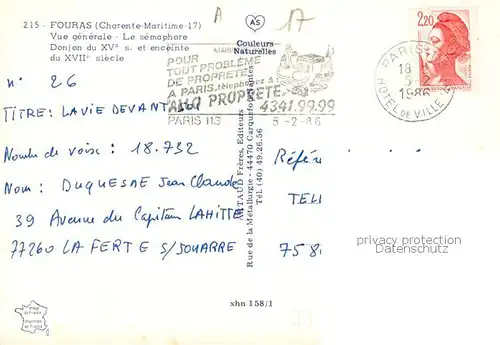 215 - FOURAS (Charente-Maritime-17)
Vue générale - Le sémaphore
Donjon du XVe s. et enceinte
du XVIIe siècle
A
17
AS
Couleurs
Naturelles
POUR
TOUT PROBLÈME
DE PROPRETÉ
A PARIS, téléphonez à
ALLO PROPRETÉ
4341.99.99
PARIS 113
5-2-86
2,20
PARIS
18
5
1986
HOTEL DE VILLE
n° 26
TITRE: LA VIE DEVANT SOI
Nombre de voix : 18.732
Nom : DUQUESNE Jean Claude
39 Avenue du Capitain LAHITTE
77260 LA FERTE S/JOUARRE
ARTAUD Frères, Editeurs
Rue de la Métallurgie - 44470 Carquefou
Tél. (40) 49.26.56
Référ
TEL
758
privacy protection
Datenschutz
xhn 158/1